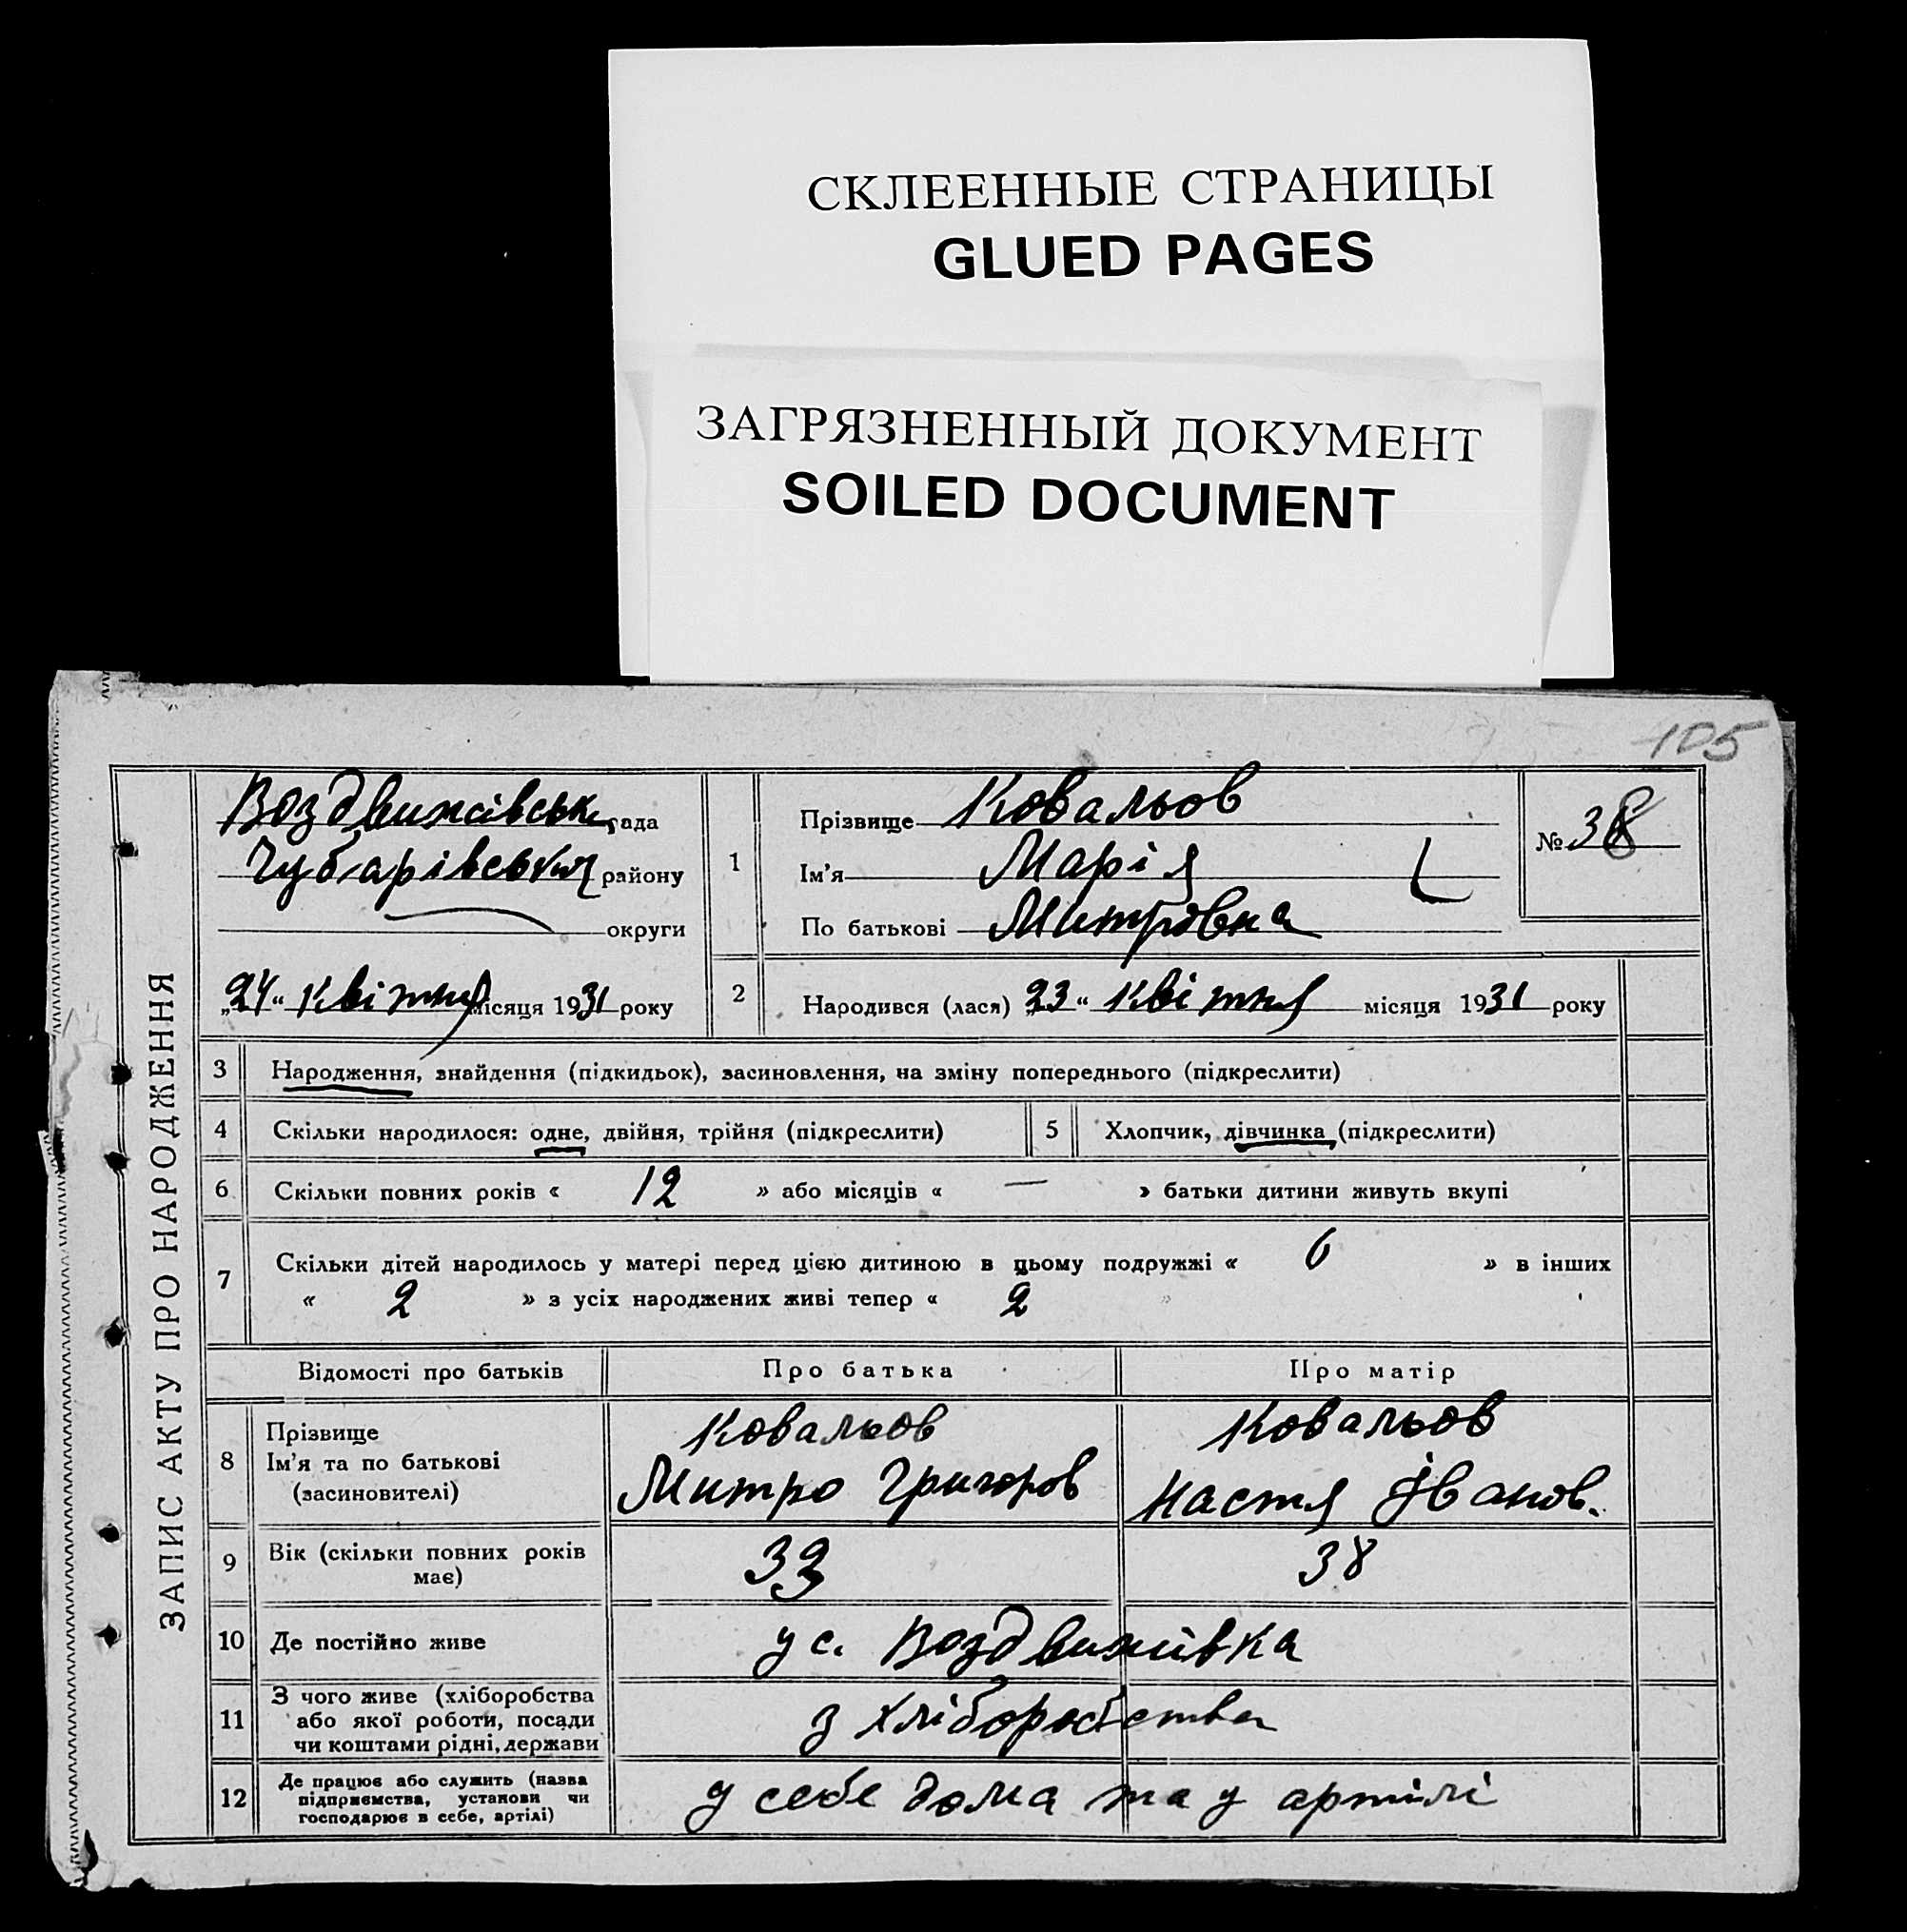 СКЛЕЕННЫЕ СТРАНИЦЫ
GLUED PAGES
ЗАГРЯЗНЕННЫЙ ДОКУМЕНТ
SOILED DOCUMENT
105
ЗАПИС АКТУ ПРО НАРОДЖЕННЯ
Воздвижівська рада
Чубарівський району
округи
„24“ квітня місяця 1931 року
1
Прізвище Ковальов
Ім'я Марія
По батькові Митровна
№ 38
2
Народився (лася) „23“ квітня місяця 1931 року
3 Народження, знайдення (підкидьок), засиновлення, на зміну попереднього (підкреслити)
4 Скільки народилося: одне, двійня, трійня (підкреслити)
5 Хлопчик, дівчинка (підкреслити)
6 Скільки повних років « 12 » або місяців « — » батьки дитини живуть вкупі
7 Скільки дітей народилось у матері перед цією дитиною в цьому подружжі « 6 » в інших
« 2 » з усіх народжених живі тепер « 2 »
Відомості про батьків Про батька Про матір
8 Прізвище
Ім'я та по батькові
(засиновителі)
Ковальов
Митро Григоров
Ковальов
Настя Іванов.
9 Вік (скільки повних років
має)
33
38
10 Де постійно живе у с. Воздвижівка
11 З чого живе (хліборобства
або якої роботи, посади
чи коштами рідні, держави
з хліборобства
12 Де працює або служить (назва
підприємства, установи чи
господарює в себе, артілі)
у себе дома та у артілі